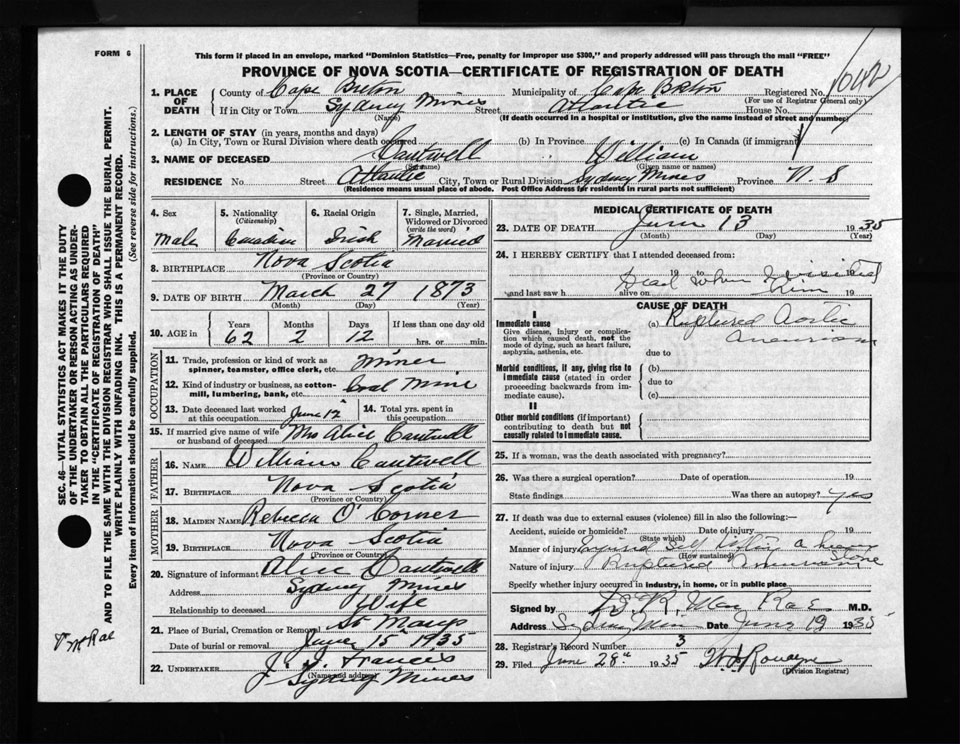 FORM 6
This form if placed in an envelope, marked "Dominion Statistics—Free, penalty for improper use $300," and properly addressed will pass through the mail "FREE"
PROVINCE OF NOVA SCOTIA—CERTIFICATE OF REGISTRATION OF DEATH
1. PLACE OF DEATH
County of Cape Breton Municipality of Cape Breton Registered No.
(For use of Registrar General only)
If in City or Town Sydney Mines Street Atlantic House No.
(Name) (If death occurred in a hospital or institution, give the name instead of street and number)
2. LENGTH OF STAY (in years, months and days)
(a) In City, Town or Rural Division where death occurred (b) In Province (c) In Canada (if immigrant)
3. NAME OF DECEASED Cantwell William
(Surname) (Given name or names)
RESIDENCE No. Street Atlantic City, Town or Rural Division Sydney Mines Province N.S
(Residence means usual place of abode. Post Office Address for residents in rural parts not sufficient)
4. Sex 5. Nationality (Citizenship) 6. Racial Origin 7. Single, Married, Widowed or Divorced (write the word)
Male Canadian Irish Married
8. BIRTHPLACE Nova Scotia
(Province or Country)
9. DATE OF BIRTH March 27 1873
(Month) (Day) (Year)
10. AGE in Years Months Days If less than one day old
62 2 12 hrs. or min.
OCCUPATION
11. Trade, profession or kind of work as spinner, teamster, office clerk, etc. Miner
12. Kind of industry or business, as cotton-mill, lumbering, bank, etc. Coal Mine
13. Date deceased last worked at this occupation June 12 14. Total yrs. spent in this occupation
15. If married give name of wife or husband of deceased Mrs Alice Cantwell
FATHER
16. NAME William Cantwell
17. BIRTHPLACE Nova Scotia
(Province or Country)
MOTHER
18. MAIDEN NAME Rebecca O'Corner
19. BIRTHPLACE Nova Scotia
(Province or Country)
20. Signature of informant Alice Cantwell
Address Sydney Mines
Relationship to deceased Wife
21. Place of Burial, Cremation or Removal St Marys
Date of burial or removal June 15 1935
22. UNDERTAKER J. J. Francis
(Name and address)
Sydney Mines
MEDICAL CERTIFICATE OF DEATH
23. DATE OF DEATH June 13 1935
(Month) (Day) (Year)
24. I HEREBY CERTIFY that I attended deceased from:
19 to 19
Dead when I visited
and last saw h alive on him 19
CAUSE OF DEATH
I
Immediate cause (a) Ruptured Aortic
Give disease, injury or complication which caused death, not the mode of dying, such as heart failure, asphyxia, asthenia, etc.
Aneurism
due to
Morbid conditions, if any, giving rise to immediate cause (stated in order proceeding backwards from immediate cause).
(b)
due to
(c)
II
Other morbid conditions (if important) contributing to death but not causally related to immediate cause.
25. If a woman, was the death associated with pregnancy?
26. Was there a surgical operation? Date of operation 19
State findings Was there an autopsy? yes
27. If death was due to external causes (violence) fill in also the following:—
Accident, suicide or homicide? Date of injury 19
(State which)
Manner of injury Injured self lifting a heavy
(How sustained) Stone
Nature of injury Ruptured Aneurism
Specify whether injury occurred in industry, in home, or in public place
Signed by Mac Rae M.D.
Address Date June 19 1935
28. Registrar's Record Number 3
29. Filed June 28th 1935
(Division Registrar)
SEC. 46—VITAL STATISTICS ACT MAKES IT THE DUTY
OF THE UNDERTAKER OR PERSON ACTING AS UNDER-
TAKER TO OBTAIN ALL THE PARTICULARS REQUIRED
IN THE "CERTIFICATE OF REGISTRATION OF DEATH"
AND TO FILE THE SAME WITH THE DIVISION REGISTRAR WHO SHALL ISSUE THE BURIAL PERMIT.
WRITE PLAINLY WITH UNFADING INK. THIS IS A PERMANENT RECORD.
Every item of information should be carefully supplied. (See reverse side for instructions.)
McRae